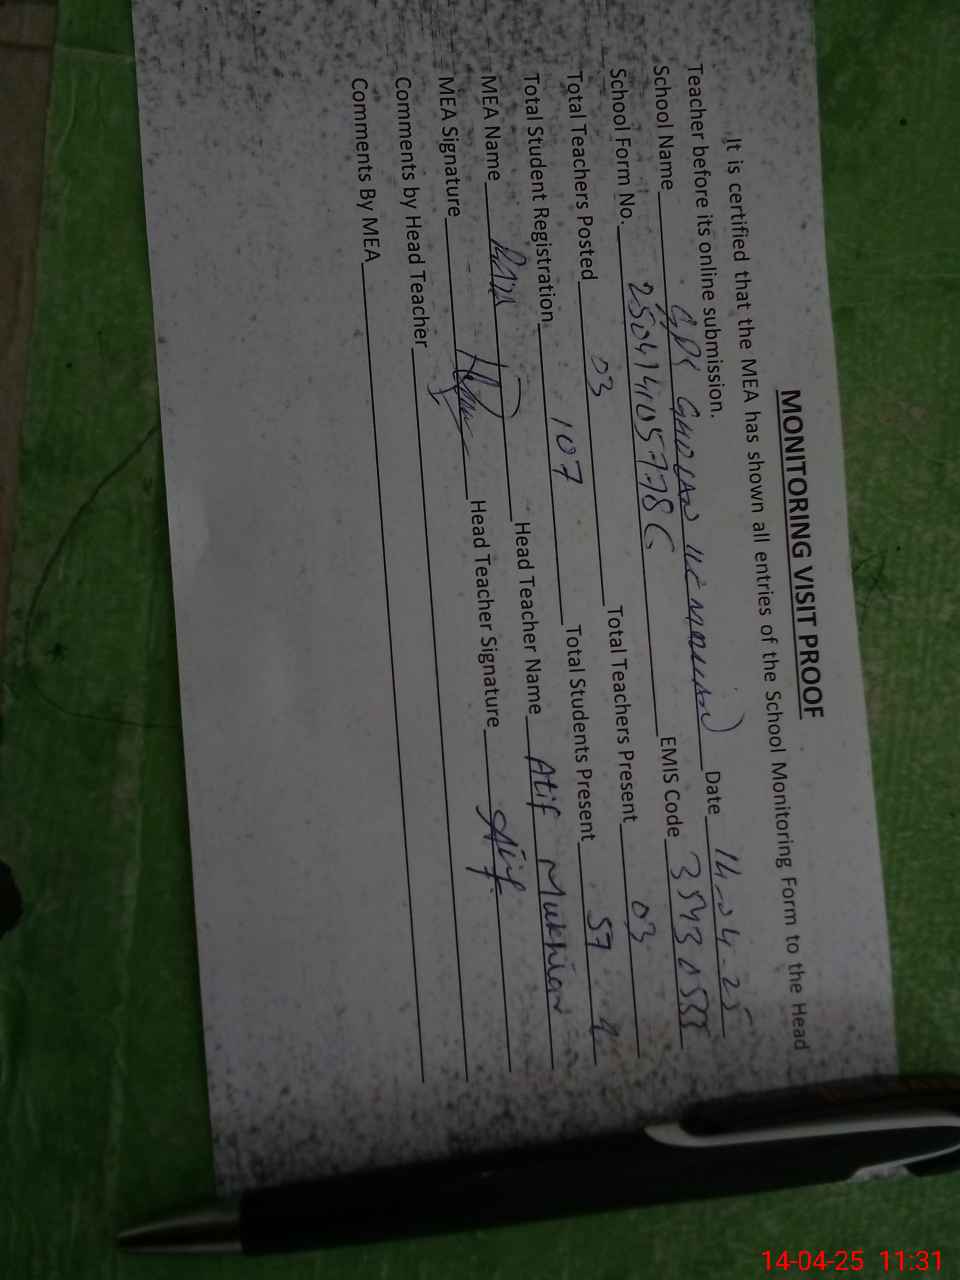 MONITORING VISIT PROOF
It is certified that the MEA has shown all entries of the School Monitoring Form to the Head
Teacher before its online submission.
School Name GPS Date 14-04-25
School Form No. EMIS Code
Total Teachers Posted 03 Total Teachers Present 03
Total Student Registration 107 Total Students Present 57
MEA Name Head Teacher Name Atif Mukhtar
MEA Signature Head Teacher Signature Atif
Comments by Head Teacher
Comments By MEA
14-04-25 11:31